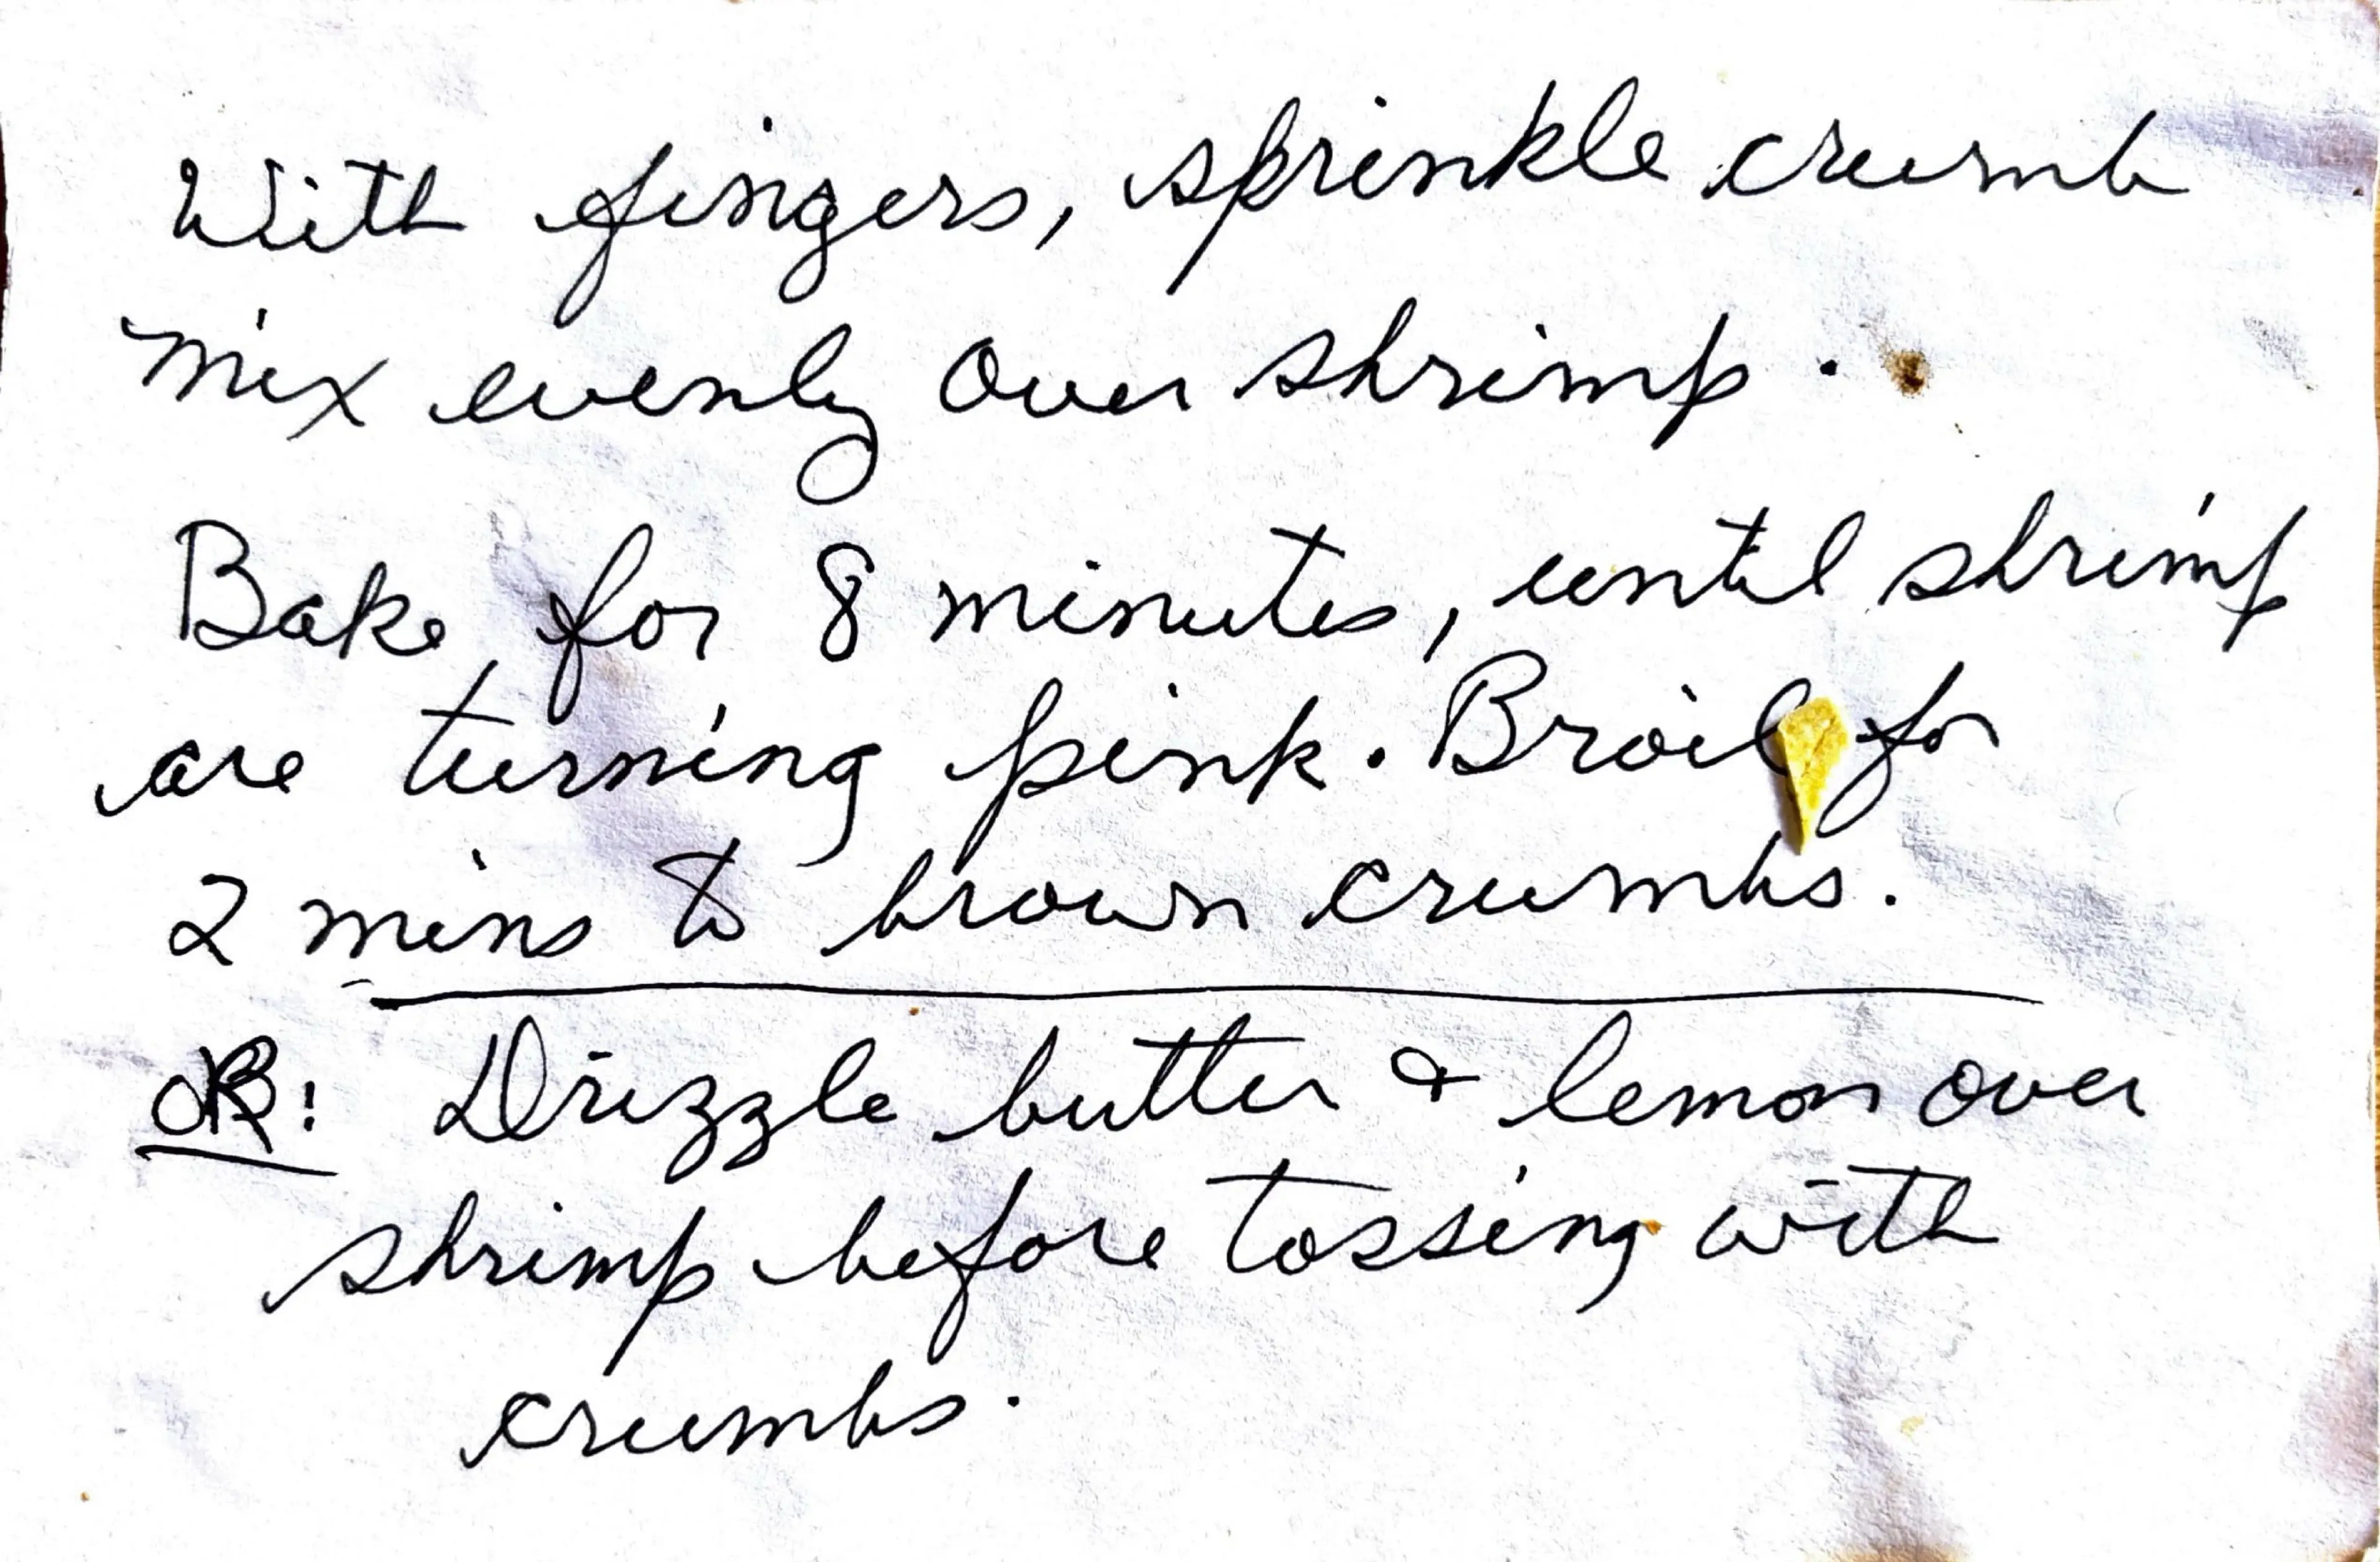 With fingers, sprinkle crumb
mix evenly over shrimp.
Bake for 8 minutes, until shrimp
are turning pink. Broil for
2 mins to brown crumbs.
OR: Drizzle butter & lemon over
shrimp before tossing with
crumbs.